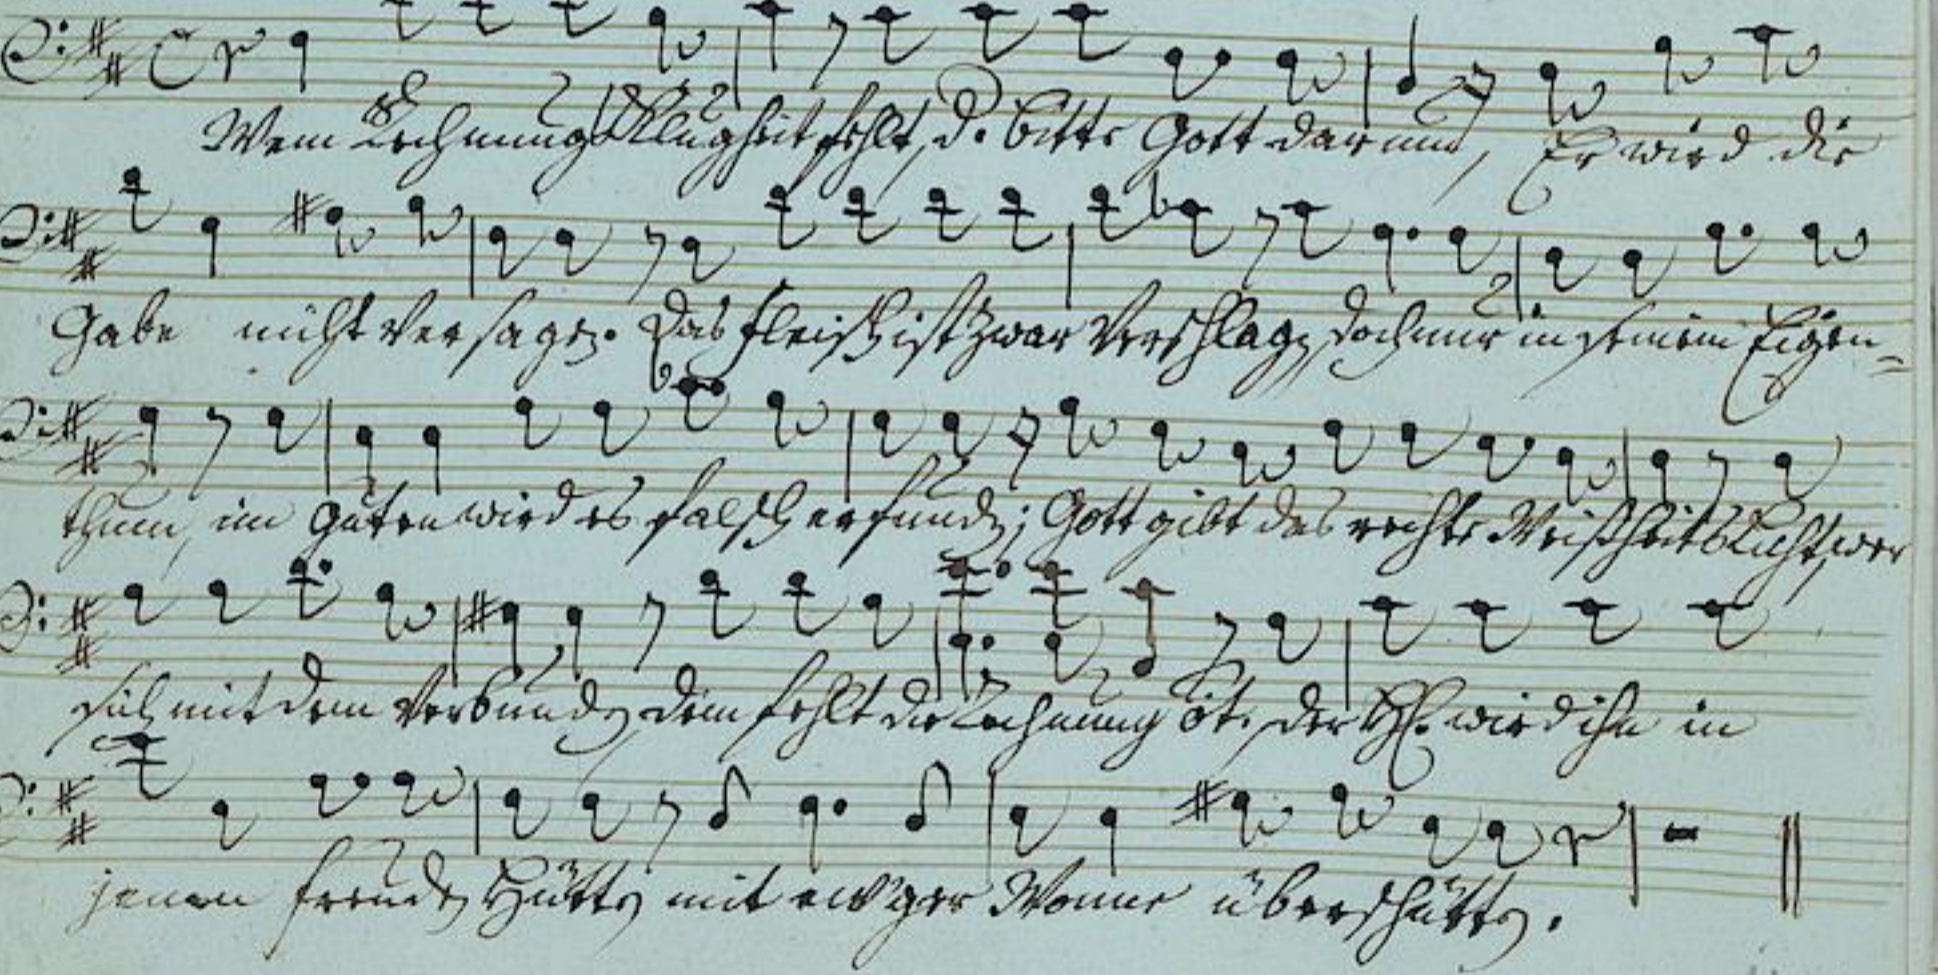 Wem Rechnungs Klugheit fehlt, d. bitte Gott darum, Er wird die
Gabe nicht versagen. Das Fleisch ist zwar verschlagen doch nur in seinem Eigen-
thum, im Guten wird es falsch erfunden; Gott gibt das rechte Weißheits Licht, wer
sich mit dem verbunden dem fehlt die Rechnung der wird ihn in
jenen Freuden Hütten mit ewger Wonne überschütten.